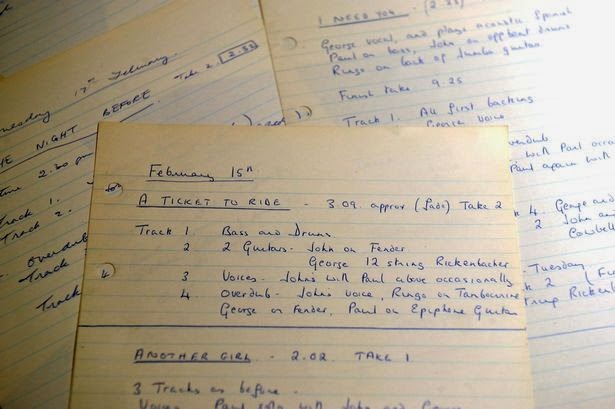 February 15th
A TICKET TO RIDE - 3.09. approx (fade) Take 2
Track 1 Bass and Drums.
2 2 Guitars - John on Fender.
George 12 string Rickenbacker
3 Voices - Johns with Paul above occasionally
4 Overdub - Johns voice, Ringo on Tambourine
George on Fender, Paul on Epiphone Guitar
ANOTHER GIRL - 2.02. TAKE 1
3 Tracks as before -
Voices Paul solo with John and
17th February.
THE NIGHT BEFORE Take 2 2.33
2.30 pm
Track 1.
Track 2.
Overdub
Track
Track
I NEED YOU -
George vocal, and plays acoustic Spanish
Paul on bass, John on offbeat drums
Ringo on back of Jumbo guitar
Finish take 9.25
Track 1. All first backing
George voice
overdub
with Paul
Paul again with
4 George and
2 John and
Cowbell
Tuesday
2